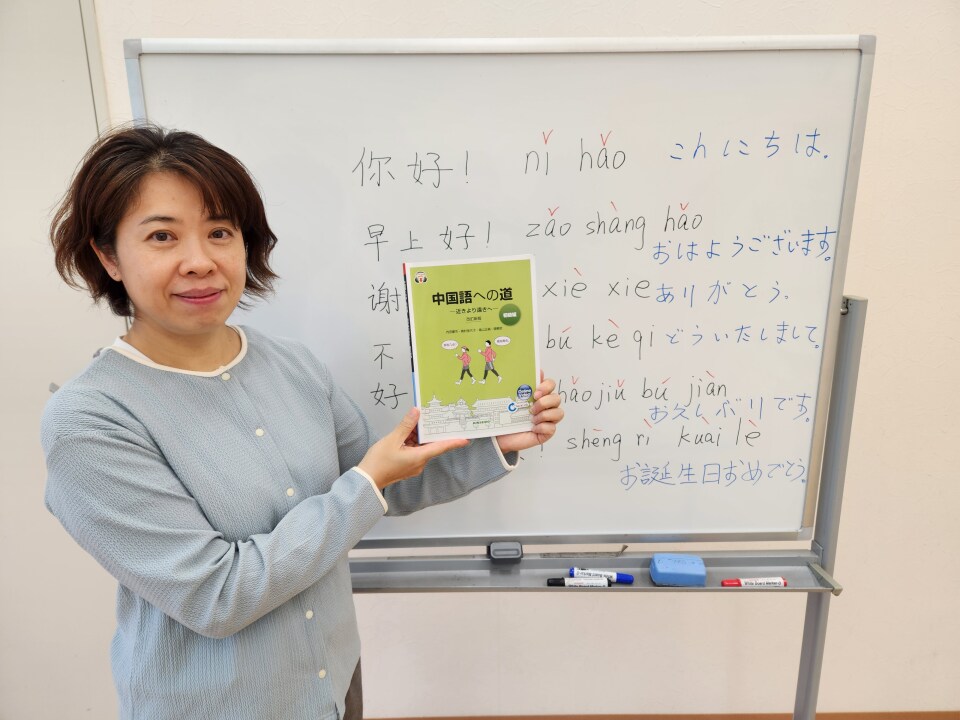 你好! nǐ hǎo こんにちは。
早上好! zǎo shàng hǎo
おはようございます。
谢 xiè xie ありがとう。
不 bú kè qi どういたしまして。
好 hǎo jiǔ bú jiàn
お久しぶりです。
! shēng rì kuài lè
お誕生日おめでとう。
中国語への道
―近きより遠きへ―